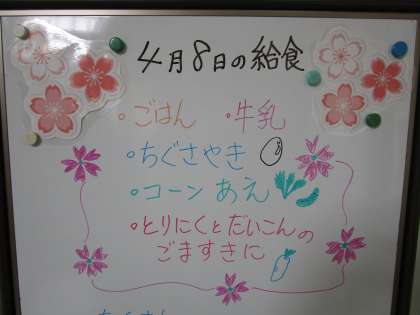 4月8日の給食
・ごはん ・牛乳
・ちぐさやき
・コーン あえ
・とりにくとだいこんの
ごますきに